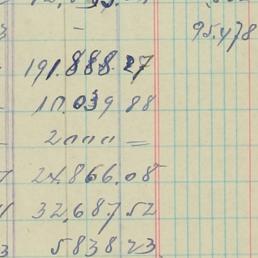 - 95.478
191.888.27
10.039 88
2000 =
24.866.08
32.687.52
5838 23